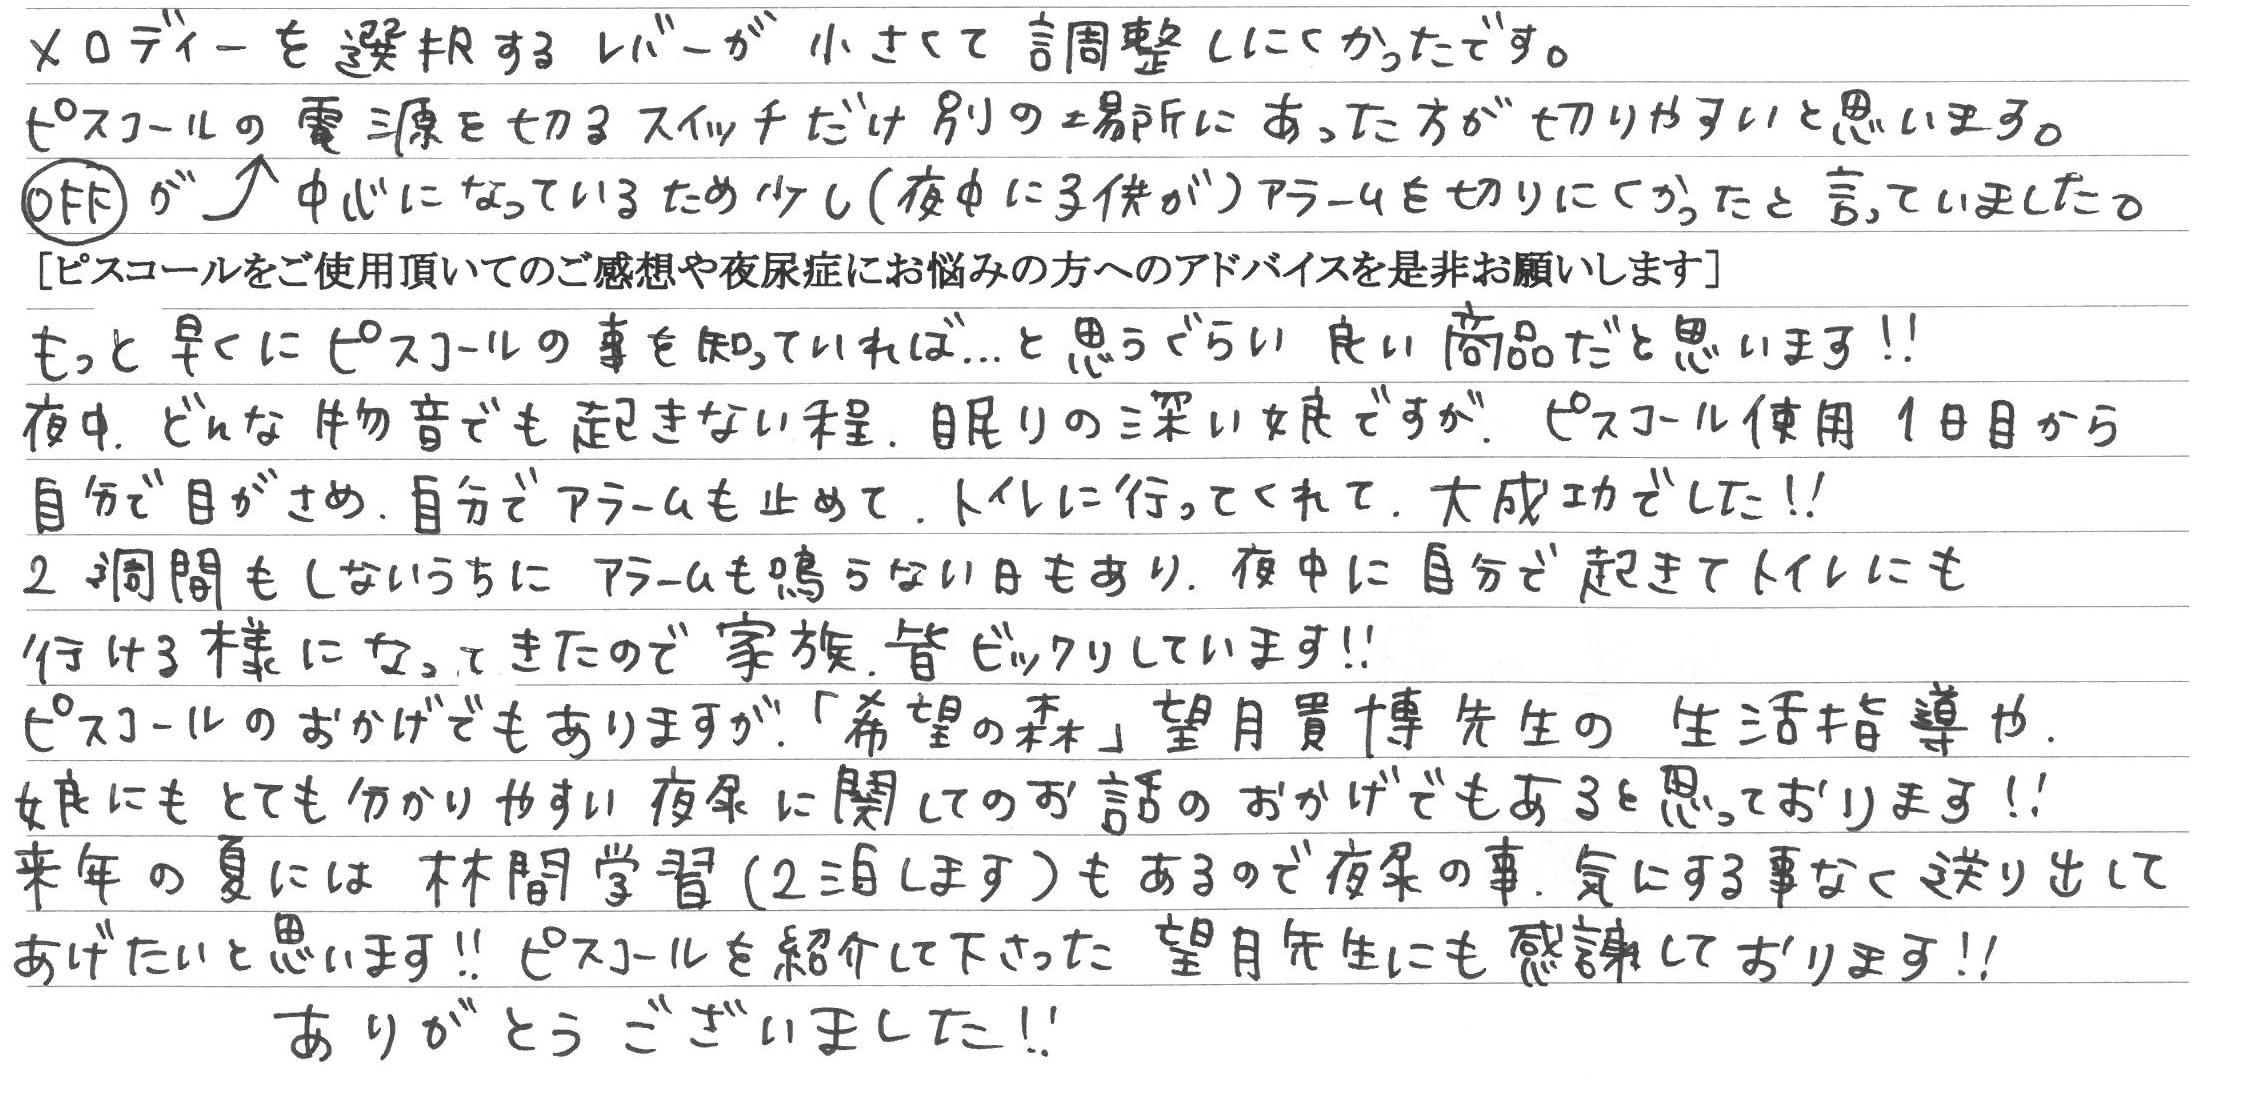 メロディーを選択するレバーが小さくて調整しにくかったです。
ピスコールの電源を切るスイッチだけ別の場所にあった方が切りやすいと思います。
OFFが↗中心になっているため少し(夜中に子供が)アラームを切りにくかったと言っていました。
[ピスコールをご使用頂いてのご感想や夜尿症にお悩みの方へのアドバイスを是非お願いします]
もっと早くにピスコールの事を知っていれば…と思うぐらい良い商品だと思います!!
夜中、どんな物音でも起きない程、眠りの深い娘ですが、ピスコール使用1日目から
自分で目がさめ、自分でアラームも止めて、トイレに行ってくれて、大成功でした!!
2週間もしないうちにアラームも鳴らない日もあり、夜中に自分で起きてトイレにも
行ける様になってきたので家族、皆ビックリしています!!
ピスコールのおかげでもありますが、「希望の森」望月貴博先生の生活指導や、
娘にもとても分かりやすい夜尿に関してのお話のおかげでもあると思っております!!
来年の夏には林間学習(2泊します)もあるので夜尿の事、気にする事なく送り出して
あげたいと思います!!ピスコールを紹介して下さった望月先生にも感謝しております!!
ありがとうございました!!